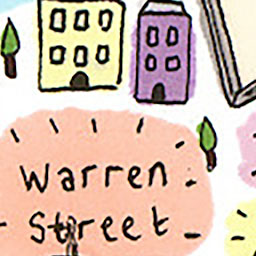 Warren
Street